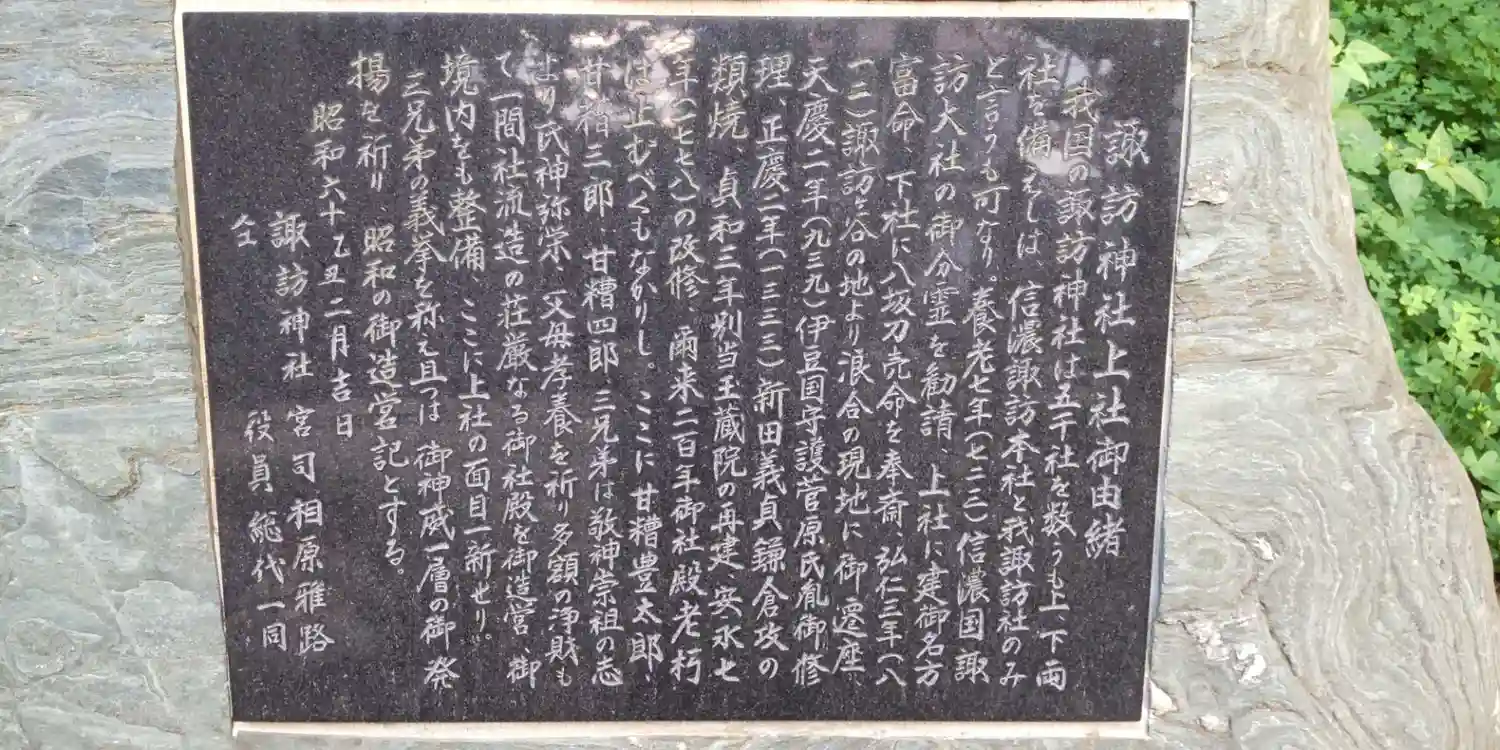 諏訪神社上社御由緒
我国の諏訪神社は五千社を数うも上、下両
社を備えしは 信濃諏訪本社と我諏訪社のみ
と言うも可なり。養老七年(七二三)信濃国諏
訪大社の御分霊を勧請、上社に建御名方
富命、下社に八坂刀売命を奉斎、弘仁三年(八
一二)諏訪ヶ谷の地より浪合の現地に御遷座、
天慶二年(九三九)伊豆国守護菅原氏胤御修
理、正慶二年(一三三三)新田義貞鎌倉攻の
類焼、貞和三年別当玉蔵院の再建、安永七
年(一七七八)の改修、爾来二百年御社殿老朽
は止むべくもなかりし。ここに甘糟豊太郎、
甘糟三郎、甘糟四郎、三兄弟は敬神崇祖の志
より氏神弥栄、父母孝養を祈り多額の浄財も
て一間社流造の荘厳なる御社殿を御造営、御
境内をも整備、ここに上社の面目一新せり。
三兄弟の義挙を称え且つは 御神威一層の御発
揚を祈り 昭和の御造営記とする。
昭和六十乙丑二月吉日
諏訪神社 宮司相原雅路
仝 役員総代一同